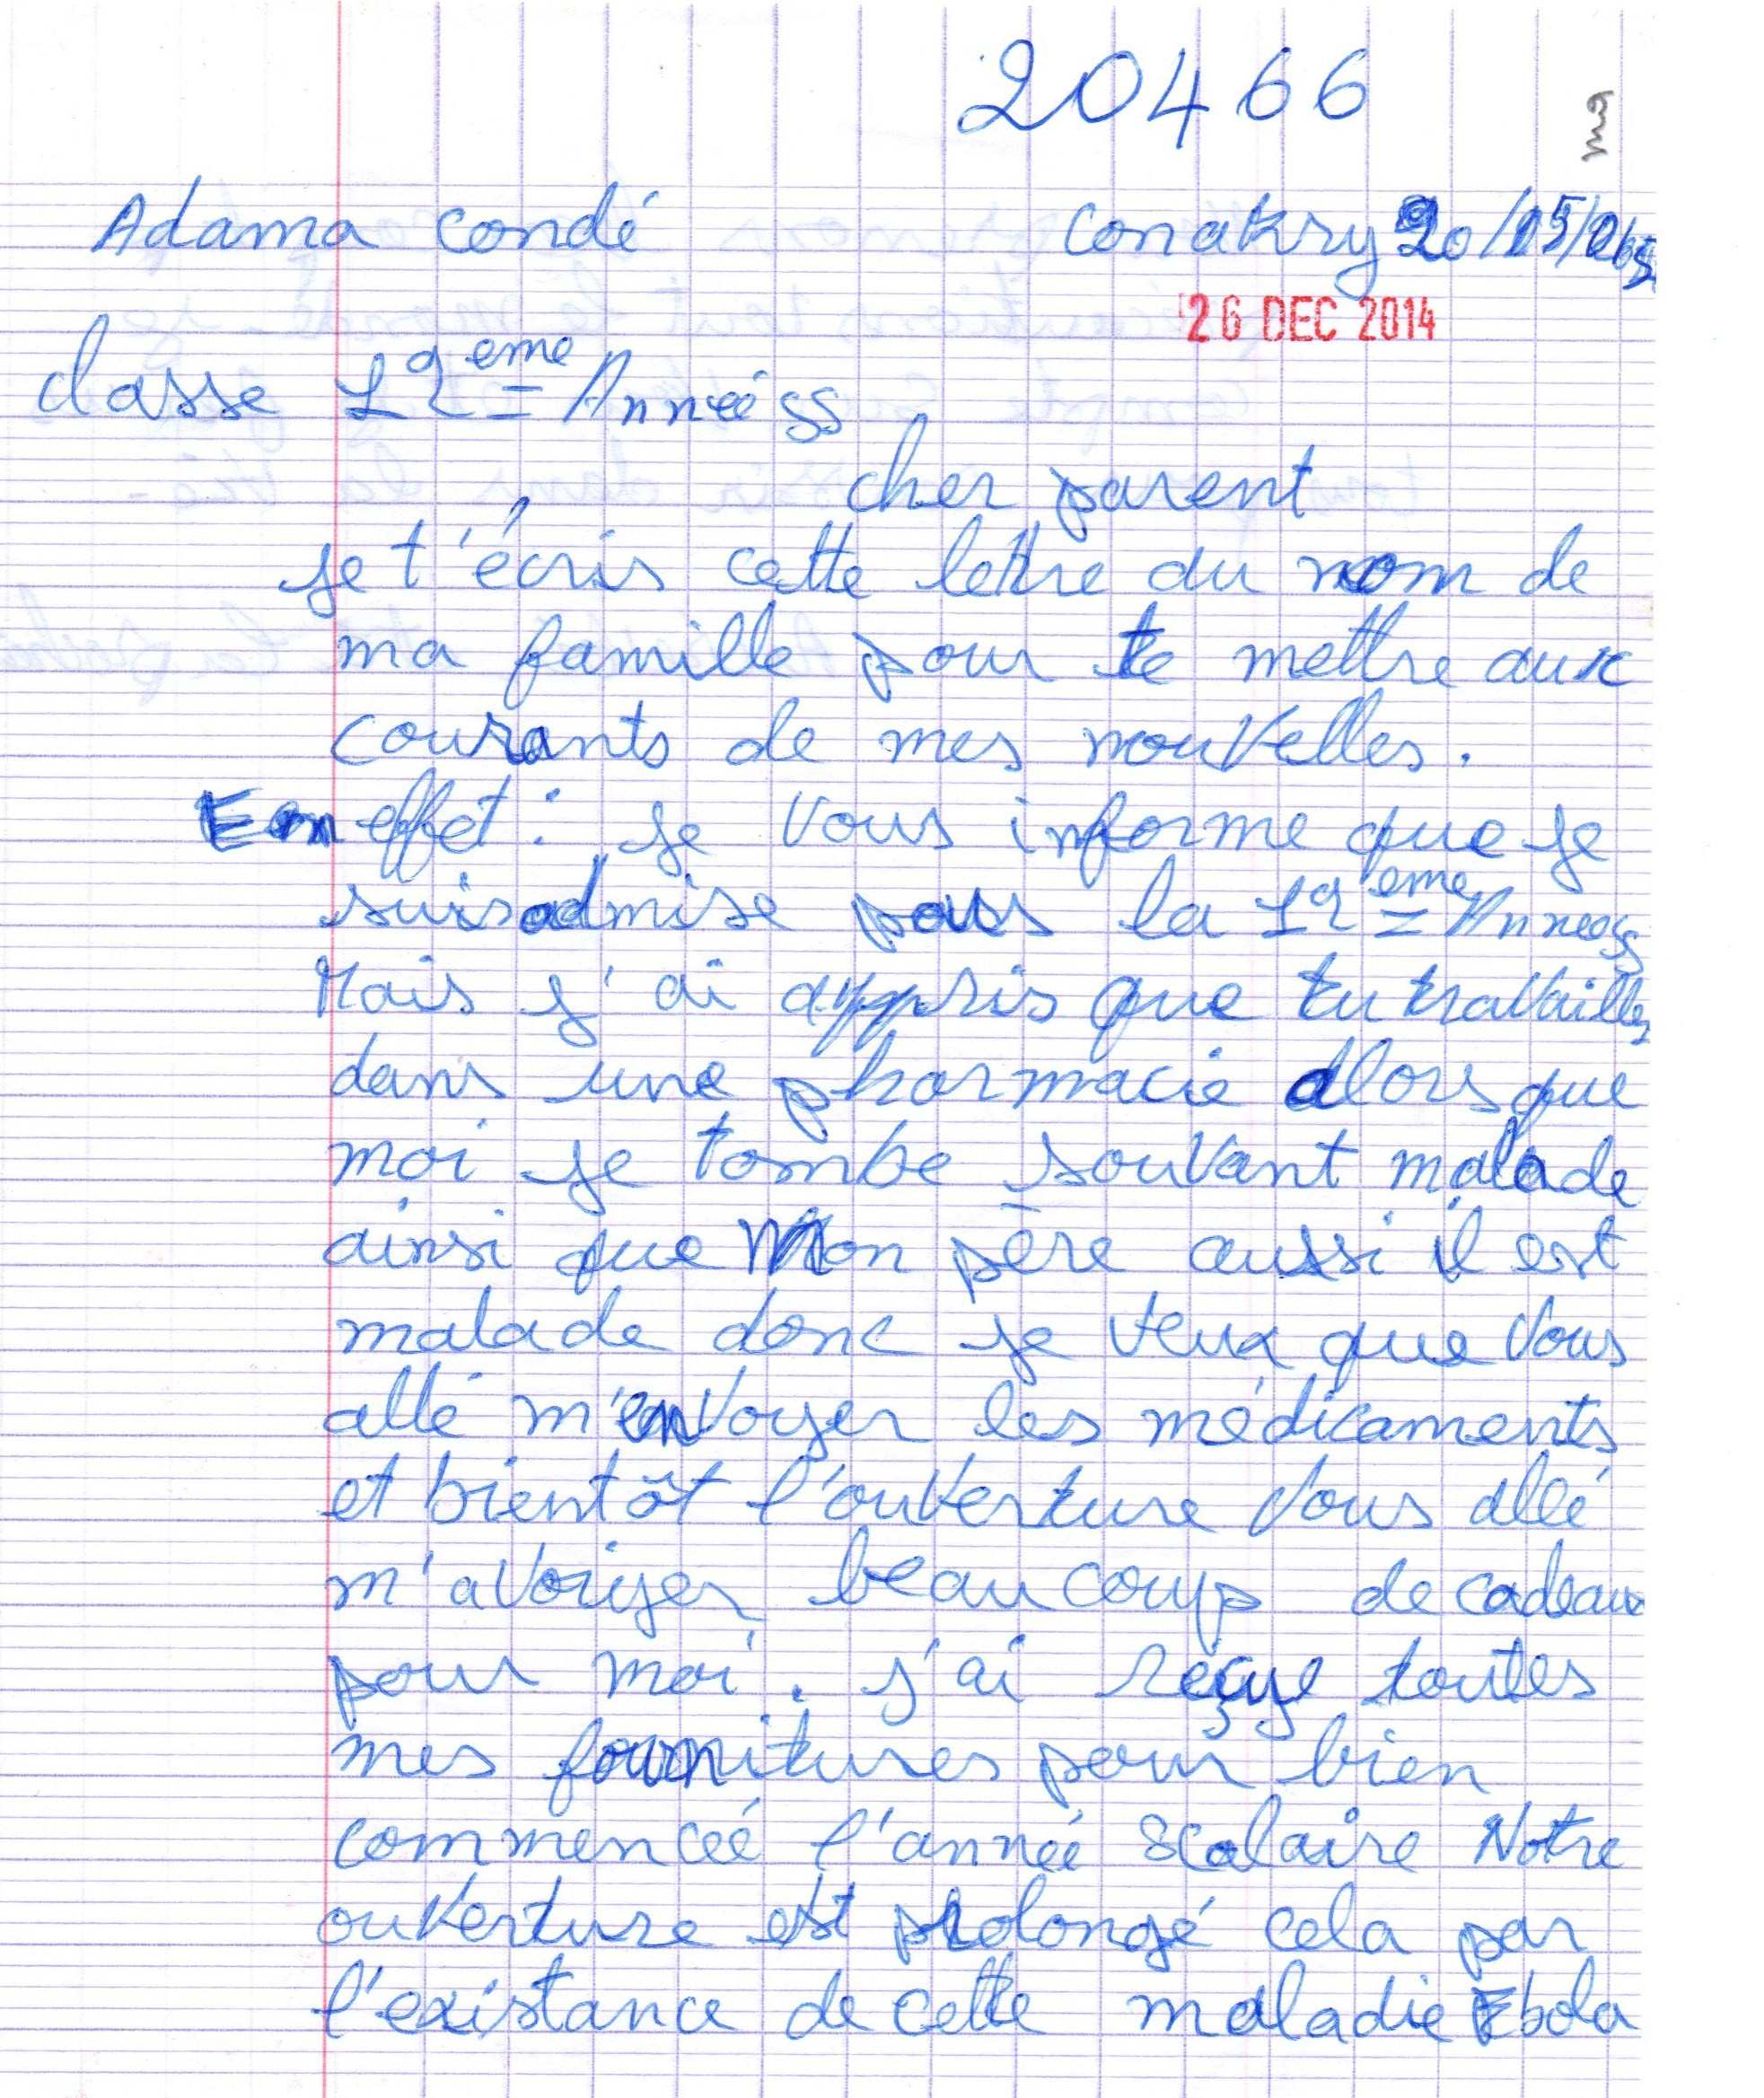 20466
Adama Condé Conakry
26 DEC 2014
classe 12eme Année SS
cher parent
je t'écris cette lettre du nom de
ma famille pour te mettre aux
courants de mes nouvelles.
En effet : je vous informe que je
suis admise pour la 12eme Annee SS
Mais j'ai appris que tu travailles
dans une pharmacie alors que
moi je tombe souvant malade
ainsi que Mon père aussi il est
malade donc je veux que vous
allé m'envoyer les médicaments
et bientôt l'ouverture vous allé
m'avoiyer beaucoup de cadeaux
pour moi. j'ai reçue toutes
mes fournitures pour bien
commenceé l'année scolaire Notre
ouverture est prolongé cela par
l'existance de cette maladie Ebola